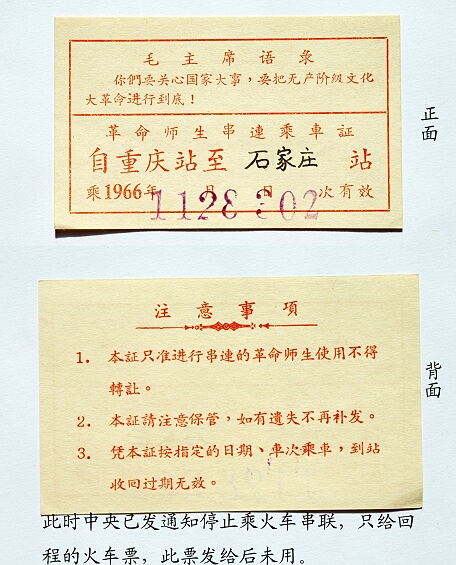 毛主席语录
你們要关心国家大事，要把无产阶级文化
大革命进行到底！
革命师生串連乘車証
自重庆站至 石家庄 站
乘1966年 月 日 次有效
1128 302
正面
注意事項
1. 本証只准进行串連的革命师生使用不得
轉訨。
2. 本証請注意保管，如有遺失不再补发。
3. 凭本証按指定的日期、車次乘車，到站
收回过期无效。
背面
此时中央已发通知停止乘火车串联，只给回
程的火车票，此票发给后未用。